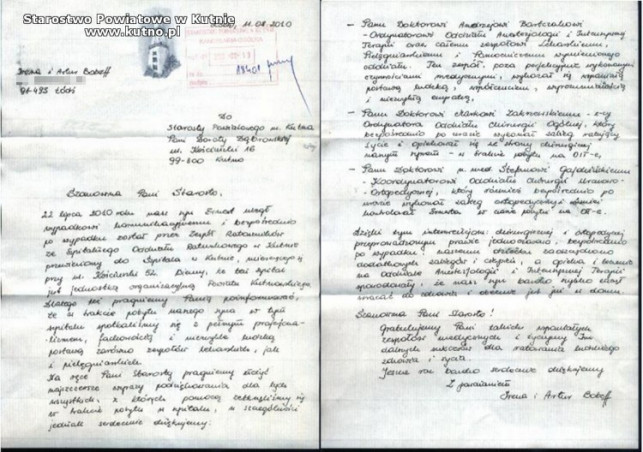 Starostwo Powiatowe w Kutnie
www.kutno.pl
11.08.2010
Irena i Artur
Łódź
Do
Starosty Powiatowego m. Kutna
Pani Doroty Dąbrowskiej
ul. Kościuszki 16
99-300 Kutno
Szanowna Pani Starosto,
22 lipca 2010 roku nasz syn uległ
wypadkowi komunikacyjnemu i bezpośrednio
po wypadku został przez Zespół Ratowników
ze Szpitalnego Oddziału Ratunkowego w Kutnie
przewieziony do Szpitala w Kutnie, mieszczącego się
przy ul. Kościuszki 52. Wiemy, że ten szpital
jest jednostką organizacyjną Powiatu Kutnowskiego.
Dlatego też pragniemy Panią poinformować,
że w trakcie pobytu naszego syna w tym
szpitalu spotkaliśmy się z pełnym profesjona-
lizmem, fachowością i niezwykle ludzką
postawą zarówno zespołów lekarskich, jak
i pielęgniarskich.
Na ręce Pani Starosty pragniemy złożyć
najszczersze wyrazy podziękowania dla tych
wszystkich, z których pomocą zetknęliśmy się
w trakcie pobytu w szpitalu, a szczególności
jednak serdecznie dziękujemy:
- Panu Doktorowi Andrzejowi
- Ordynatorowi Oddziału Anestezjologii i Intensywnej
Terapii oraz całemu zespołowi Lekarskiemu,
Pielęgniarskiemu i Pomocniczemu wymienionego
oddziału. Ten zespół, poza profesjonalnie wykonanymi
czynnościami medycznymi, wykazał się wspaniałą
postawą ludzką, współczuciem, wyrozumiałością
i niezwykłą empatią,
- Panu Doktorowi - z-cy
Ordynatora Oddziału Chirurgii Ogólnej, który
bezpośrednio po urazie wykonał zabieg ratujący
życie i opiekował się ze strony chirurgicznej
naszym synem - w trakcie pobytu na OIT-e,
- Panu Doktorowi n. med. Stefanowi
- Koordynatorowi Oddziału Chirurgii Urazowo
- Ortopedycznej, który również bezpośrednio po
urazie wykonał zabieg ortopedyczny i również
kontrolował w czasie pobytu na OIT-e.
Dzięki tym interwencjom: chirurgicznej i ortopedycznej
przeprowadzonym prawie jednocześnie, bezpośrednio
po wypadku, naszemu dziecku zaoszczędzono
dodatkowych zabiegów i cierpień, a opieka lekarska
na Oddziale Anestezjologii i Intensywnej Terapii
spowodowały, że nasz syn bardzo szybko mógł
wracać do zdrowia i obecnie już jest w domu.
Szanowna Pani Starosto!
Gratulujemy Pani takich wspaniałych
zespołów medycznych i życzymy Im
dalszych sukcesów dla ratowania ludzkiego
zdrowia i życia.
Jeszcze raz bardzo serdecznie dziękujemy
Z poważaniem
Irena i Artur